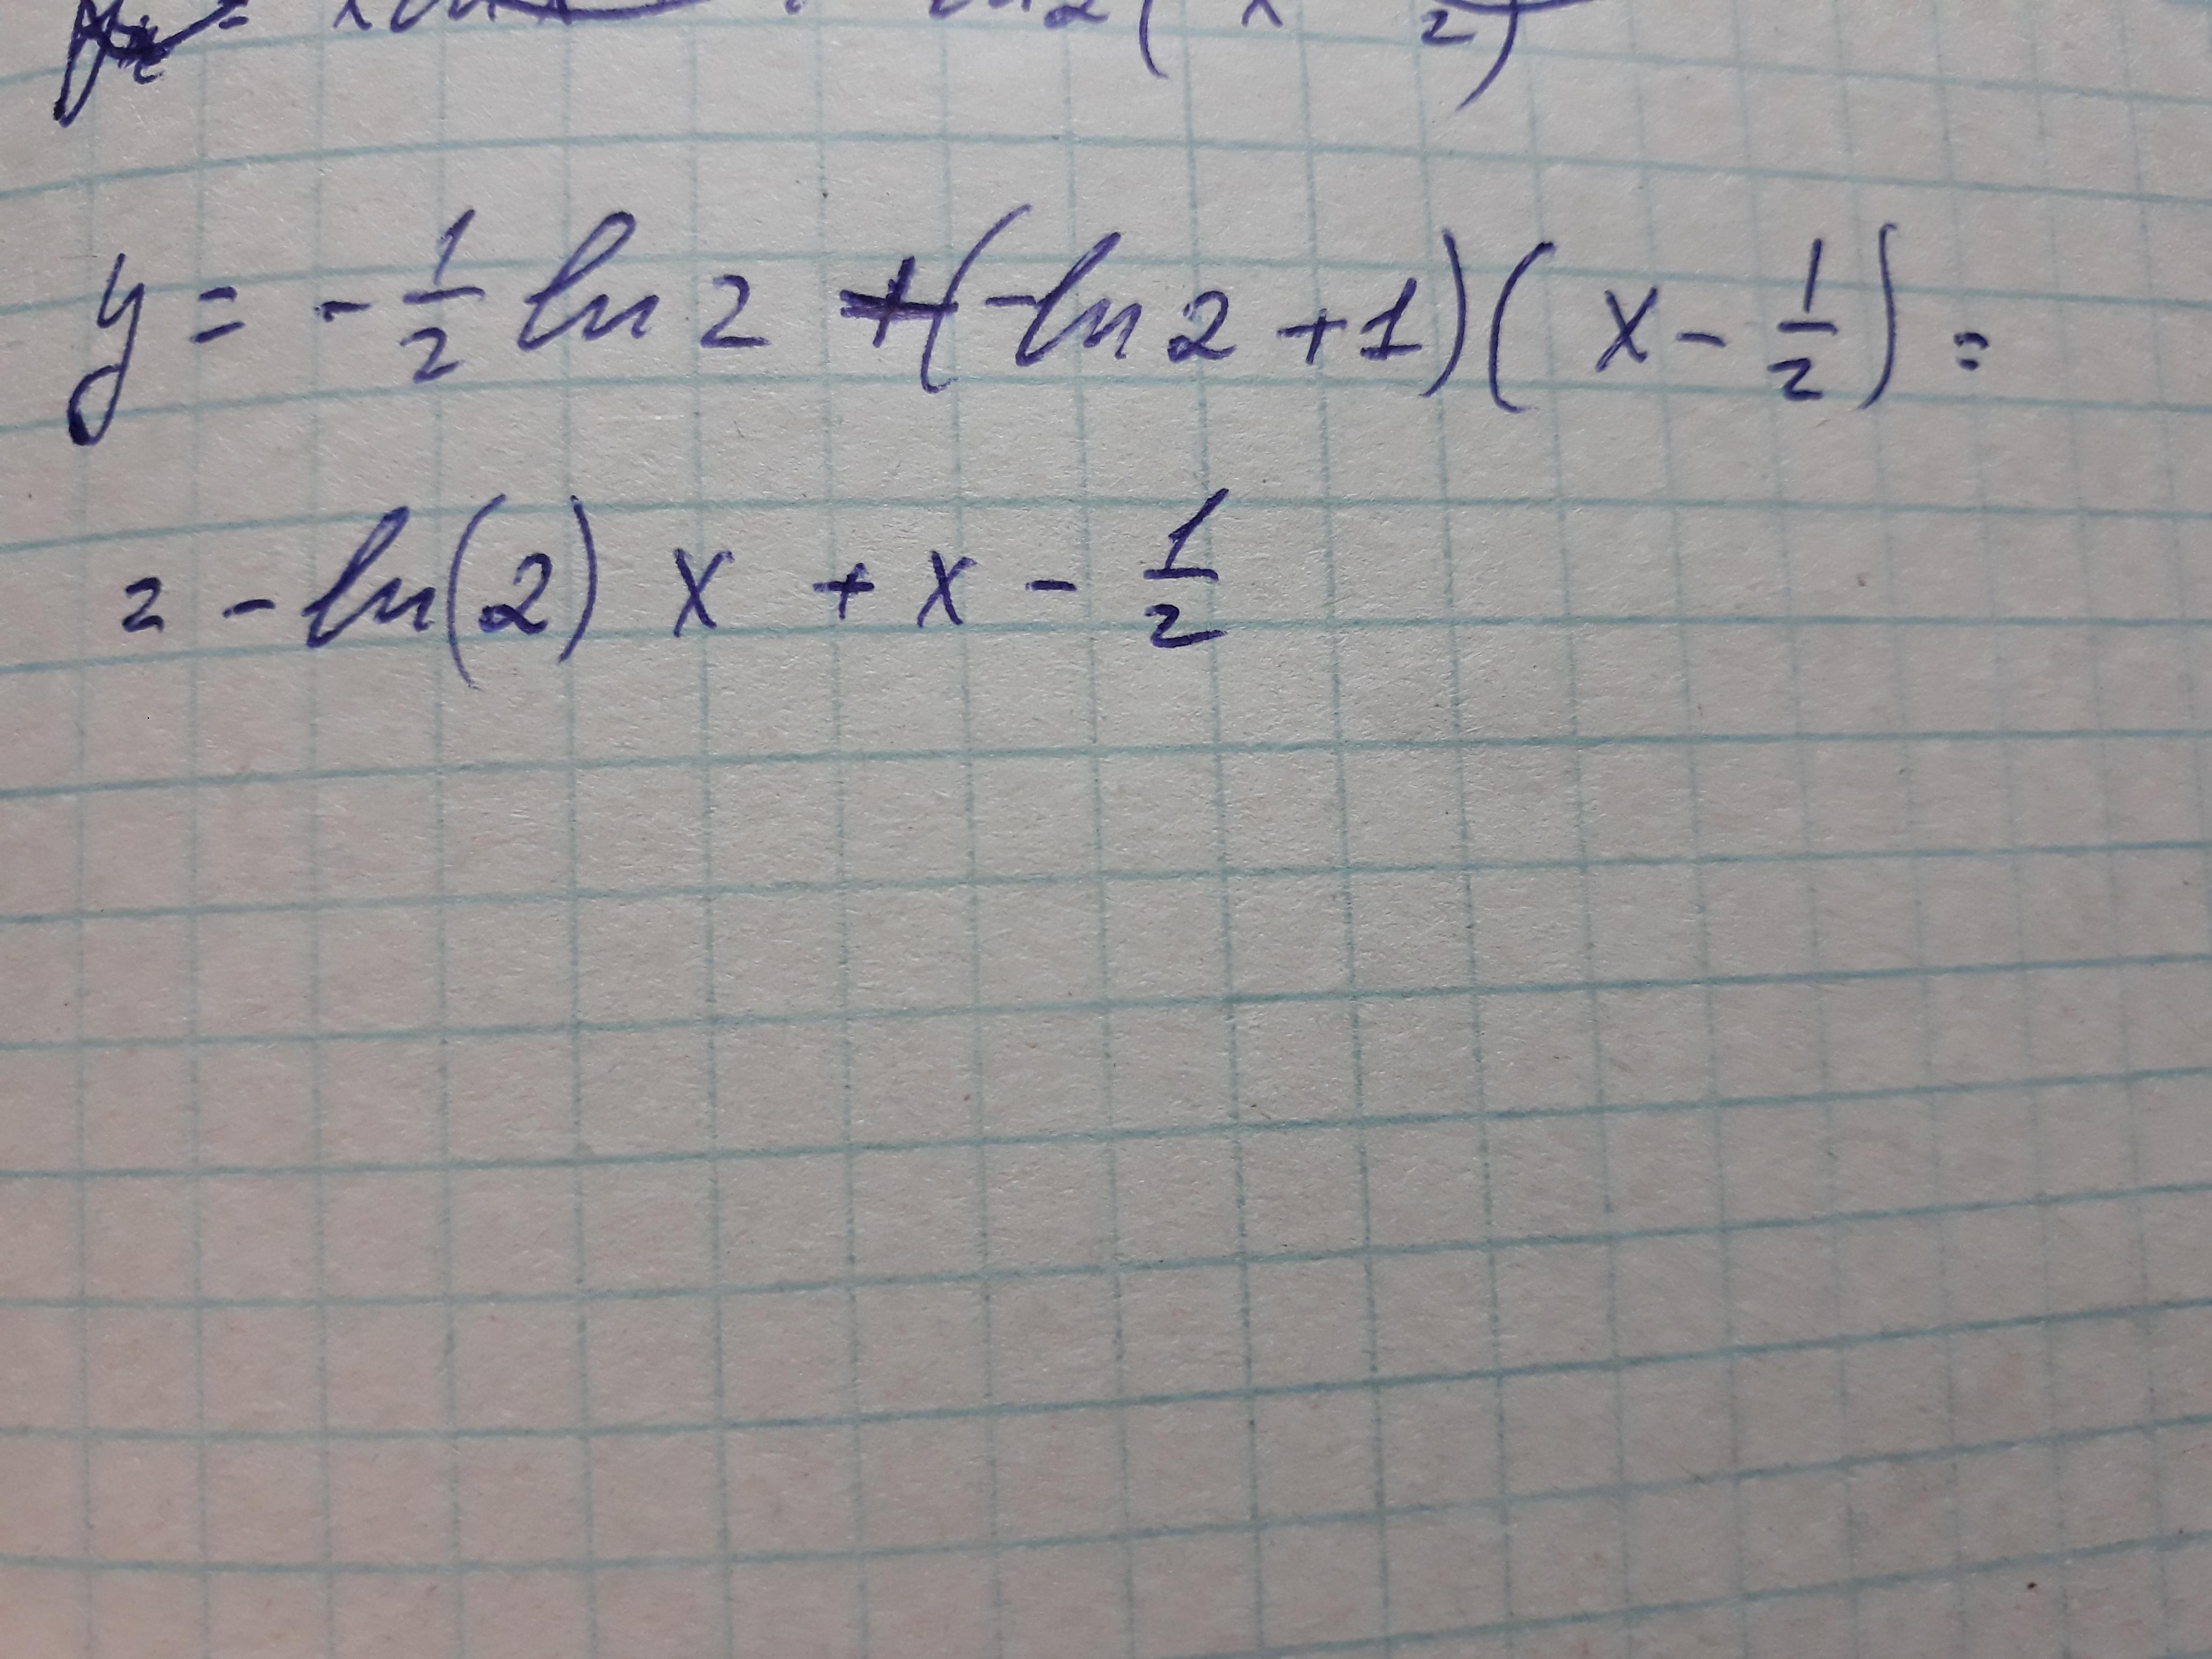 ln 2 ( x 2 )
y = - 1/2 ln 2 + (-ln 2 + 1) ( x - 1/2 ) =
= - ln(2) x + x - 1/2